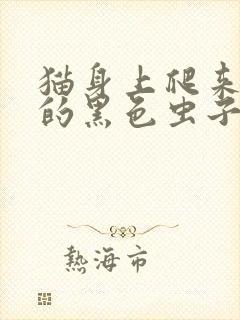 猫身上爬来
的黑色虫子
熱海市